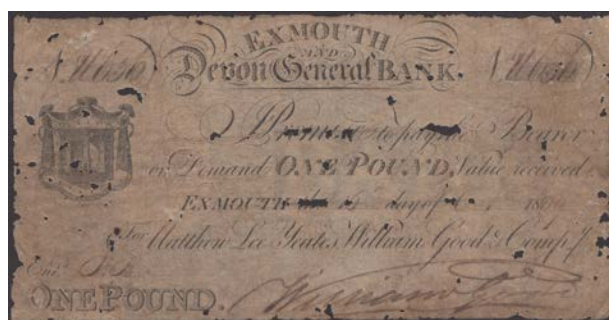 EXMOUTH
AND
Devon General BANK.
I Promise to pay the Bearer
on Demand ONE POUND, Value received
EXMOUTH the 15 day of
For Matthew Lee Yeates, William Good & Comp.y
ONE POUND. William Good